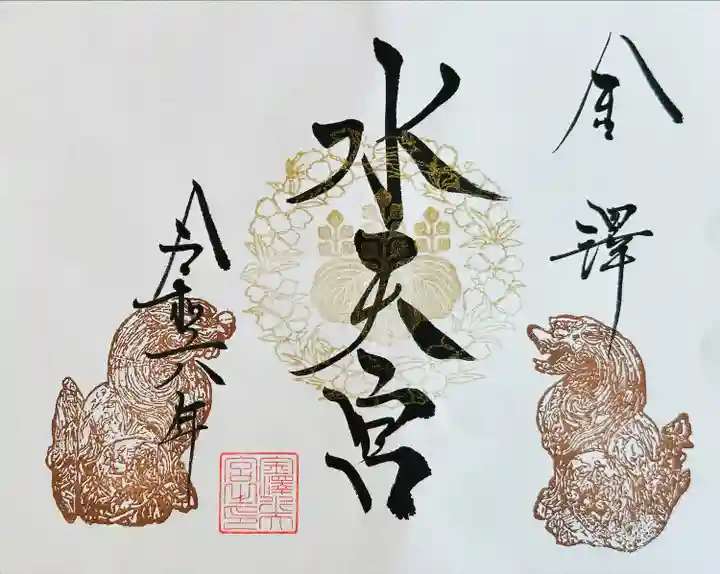 金澤
水天宮
令和六年
金澤水天宮之印